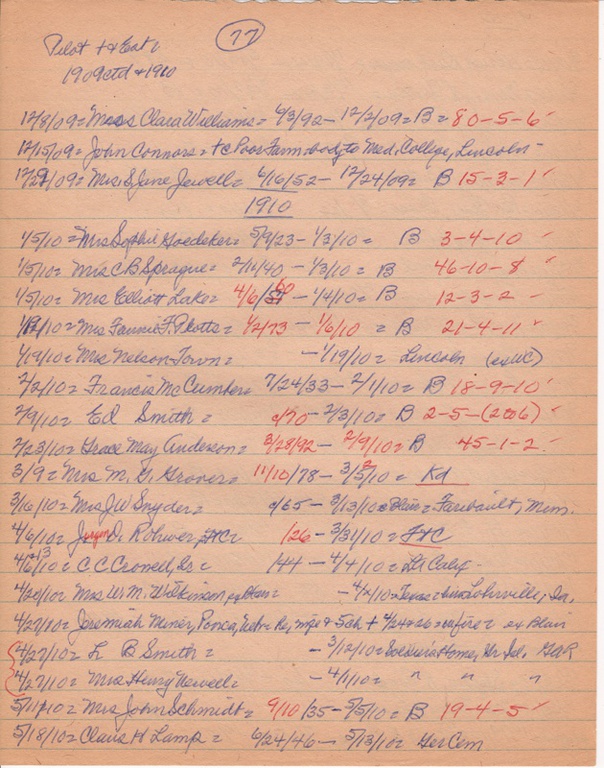 77
Pilot
1909ctd + 1910
12/8/09 = Miss Clara Williams = 6/3/92 – 12/2/09 = B = 80-5-6
12/15/09 = John Connors = Poor Farm body to Med. College, Lincoln –
12/29/09 = Mrs S Jane Jewell = 6/16/52 – 12/24/09 = B 15-3-1
1910
1/5/10 = Mrs Sophie Goedeker = 5/9/23 – 1/3/10 = B 3-4-10
1/5/10 = Mrs C B Sprague = 2/11/40 – 1/3/10 = B 46-10-8
1/5/10 = Mrs Elliott Lake = 4/6/60 – 1/4/10 = B 12-3-2
/10 = Mrs Fannie F. Plotts = 1/2/73 – 1/6/10 = B 21-4-11
1/19/10 = Mrs Nelson Town = – 1/19/10 = Lincoln
2/2/10 = Francis McCumber = 7/24/33 – 2/1/10 = B 18-9-10
2/9/10 = Ed Smith = c/70 – 2/3/10 = B 2-5-(2or6)
2/23/10 = Grace May Anderson = 3/28/92 – 2/9/10 = B 45-1-2
3/9 = Mrs M. G. Grover = 11/10/78 – 3/ /10 = Kd
3/16/10 = Mrs J W Snyder = c/65 – 3/13/10 = Faribault, Minn.
4/6/10 = Jurgen D. Rohwer, = /26 – 3/31/10 = FtC
4/ /10 = C C Crowell, Sr = /44 – 4/4/10 = Calif –
4/20/10 = Mrs W. M. Wilkinson = – 4/ /10 = Lohrville, Ia.
4/27/10 = Jeremiah Miner, Ponca, Nebr wife & 5ch + fire = ex Blair
4/27/10 = L B Smith = – 3/12/10 = Soldiers Home, Gr Isl. GAR
4/27/10 = Mrs Henry Newell = – 4/1/10 = " " "
5/11/10 = Mrs John Schmidt = 9/10/35 – 5/5/10 = B 19-4-5
5/18/10 = Claus H Lamp = 6/24/46 – 5/13/10 = Ger Cem